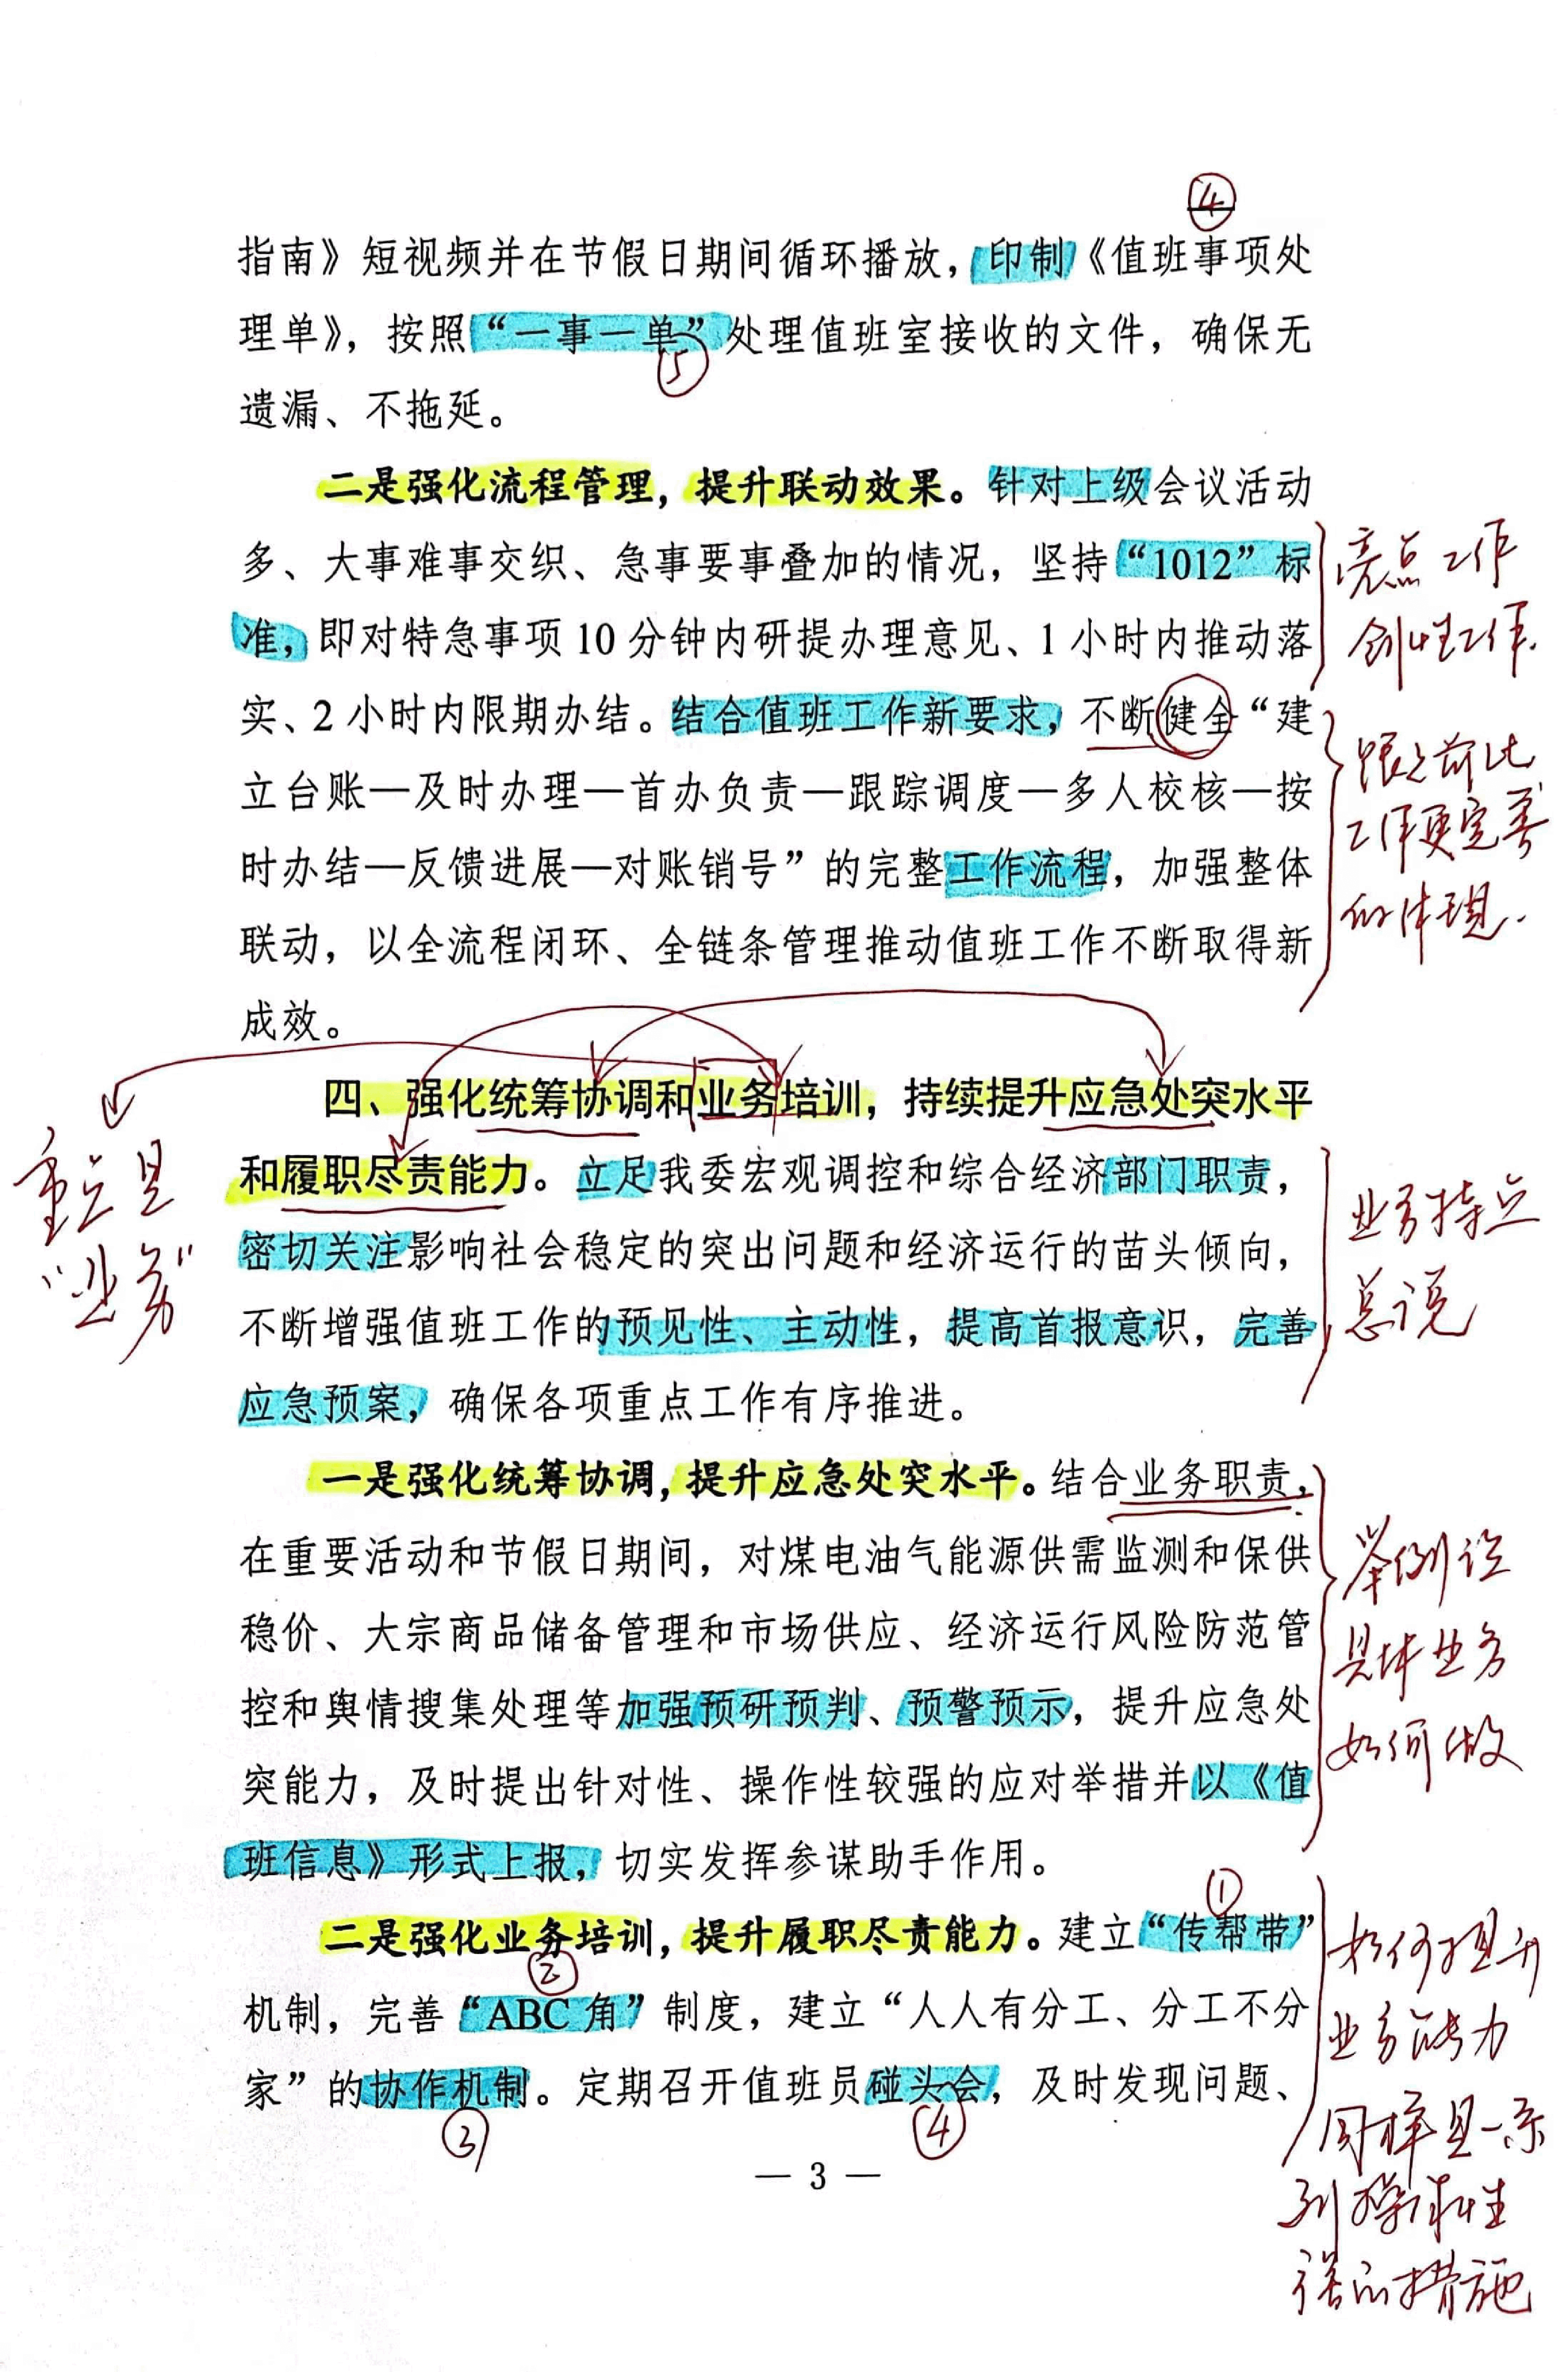 ④
指南》短视频并在节假日期间循环播放，印制《值班事项处
理单》，按照“一事一单”处理值班室接收的文件，确保无
⑤
遗漏、不拖延。
二是强化流程管理，提升联动效果。针对上级会议活动
多、大事难事交织、急事要事叠加的情况，坚持“1012”标
准，即对特急事项10分钟内研提办理意见、1小时内推动落
实、2小时内限期办结。结合值班工作新要求，不断健全“建
立台账—及时办理—首办负责—跟踪调度—多人校核—按
时办结—反馈进展—对账销号”的完整工作流程，加强整体
联动，以全流程闭环、全链条管理推动值班工作不断取得新
成效。
亮点工作
创性工作.
跟之前比
工作更完善
的体现.
四、强化统筹协调和业务培训，持续提升应急处突水平
和履职尽责能力。立足我委宏观调控和综合经济部门职责，
密切关注影响社会稳定的突出问题和经济运行的苗头倾向，
不断增强值班工作的预见性、主动性，提高首报意识，完善
应急预案，确保各项重点工作有序推进。
重点是
“业务”
业务特点
总说
一是强化统筹协调，提升应急处突水平。结合业务职责，
在重要活动和节假日期间，对煤电油气能源供需监测和保供
稳价、大宗商品储备管理和市场供应、经济运行风险防范管
控和舆情搜集处理等加强预研预判、预警预示，提升应急处
突能力，及时提出针对性、操作性较强的应对举措并以《值
班信息》形式上报，切实发挥参谋助手作用。
举例说
具体业务
如何做
①
二是强化业务培训，提升履职尽责能力。建立“传帮带”
②
机制，完善“ABC角”制度，建立“人人有分工、分工不分
家”的协作机制。定期召开值班员碰头会，及时发现问题、
③
④
如何提升
业务能力
同样是一系
列操作性
强的措施
— 3 —